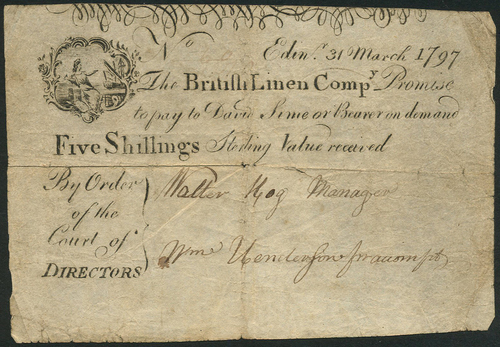 No
Edinr. 31 March 1797
The British Linen Compy. Promise
to pay to David Sime or Bearer on demand
Five Shillings Sterling Value received
By Order
of the
Court of
DIRECTORS
Walter Hog Manager
Wm Henderson pr accompt